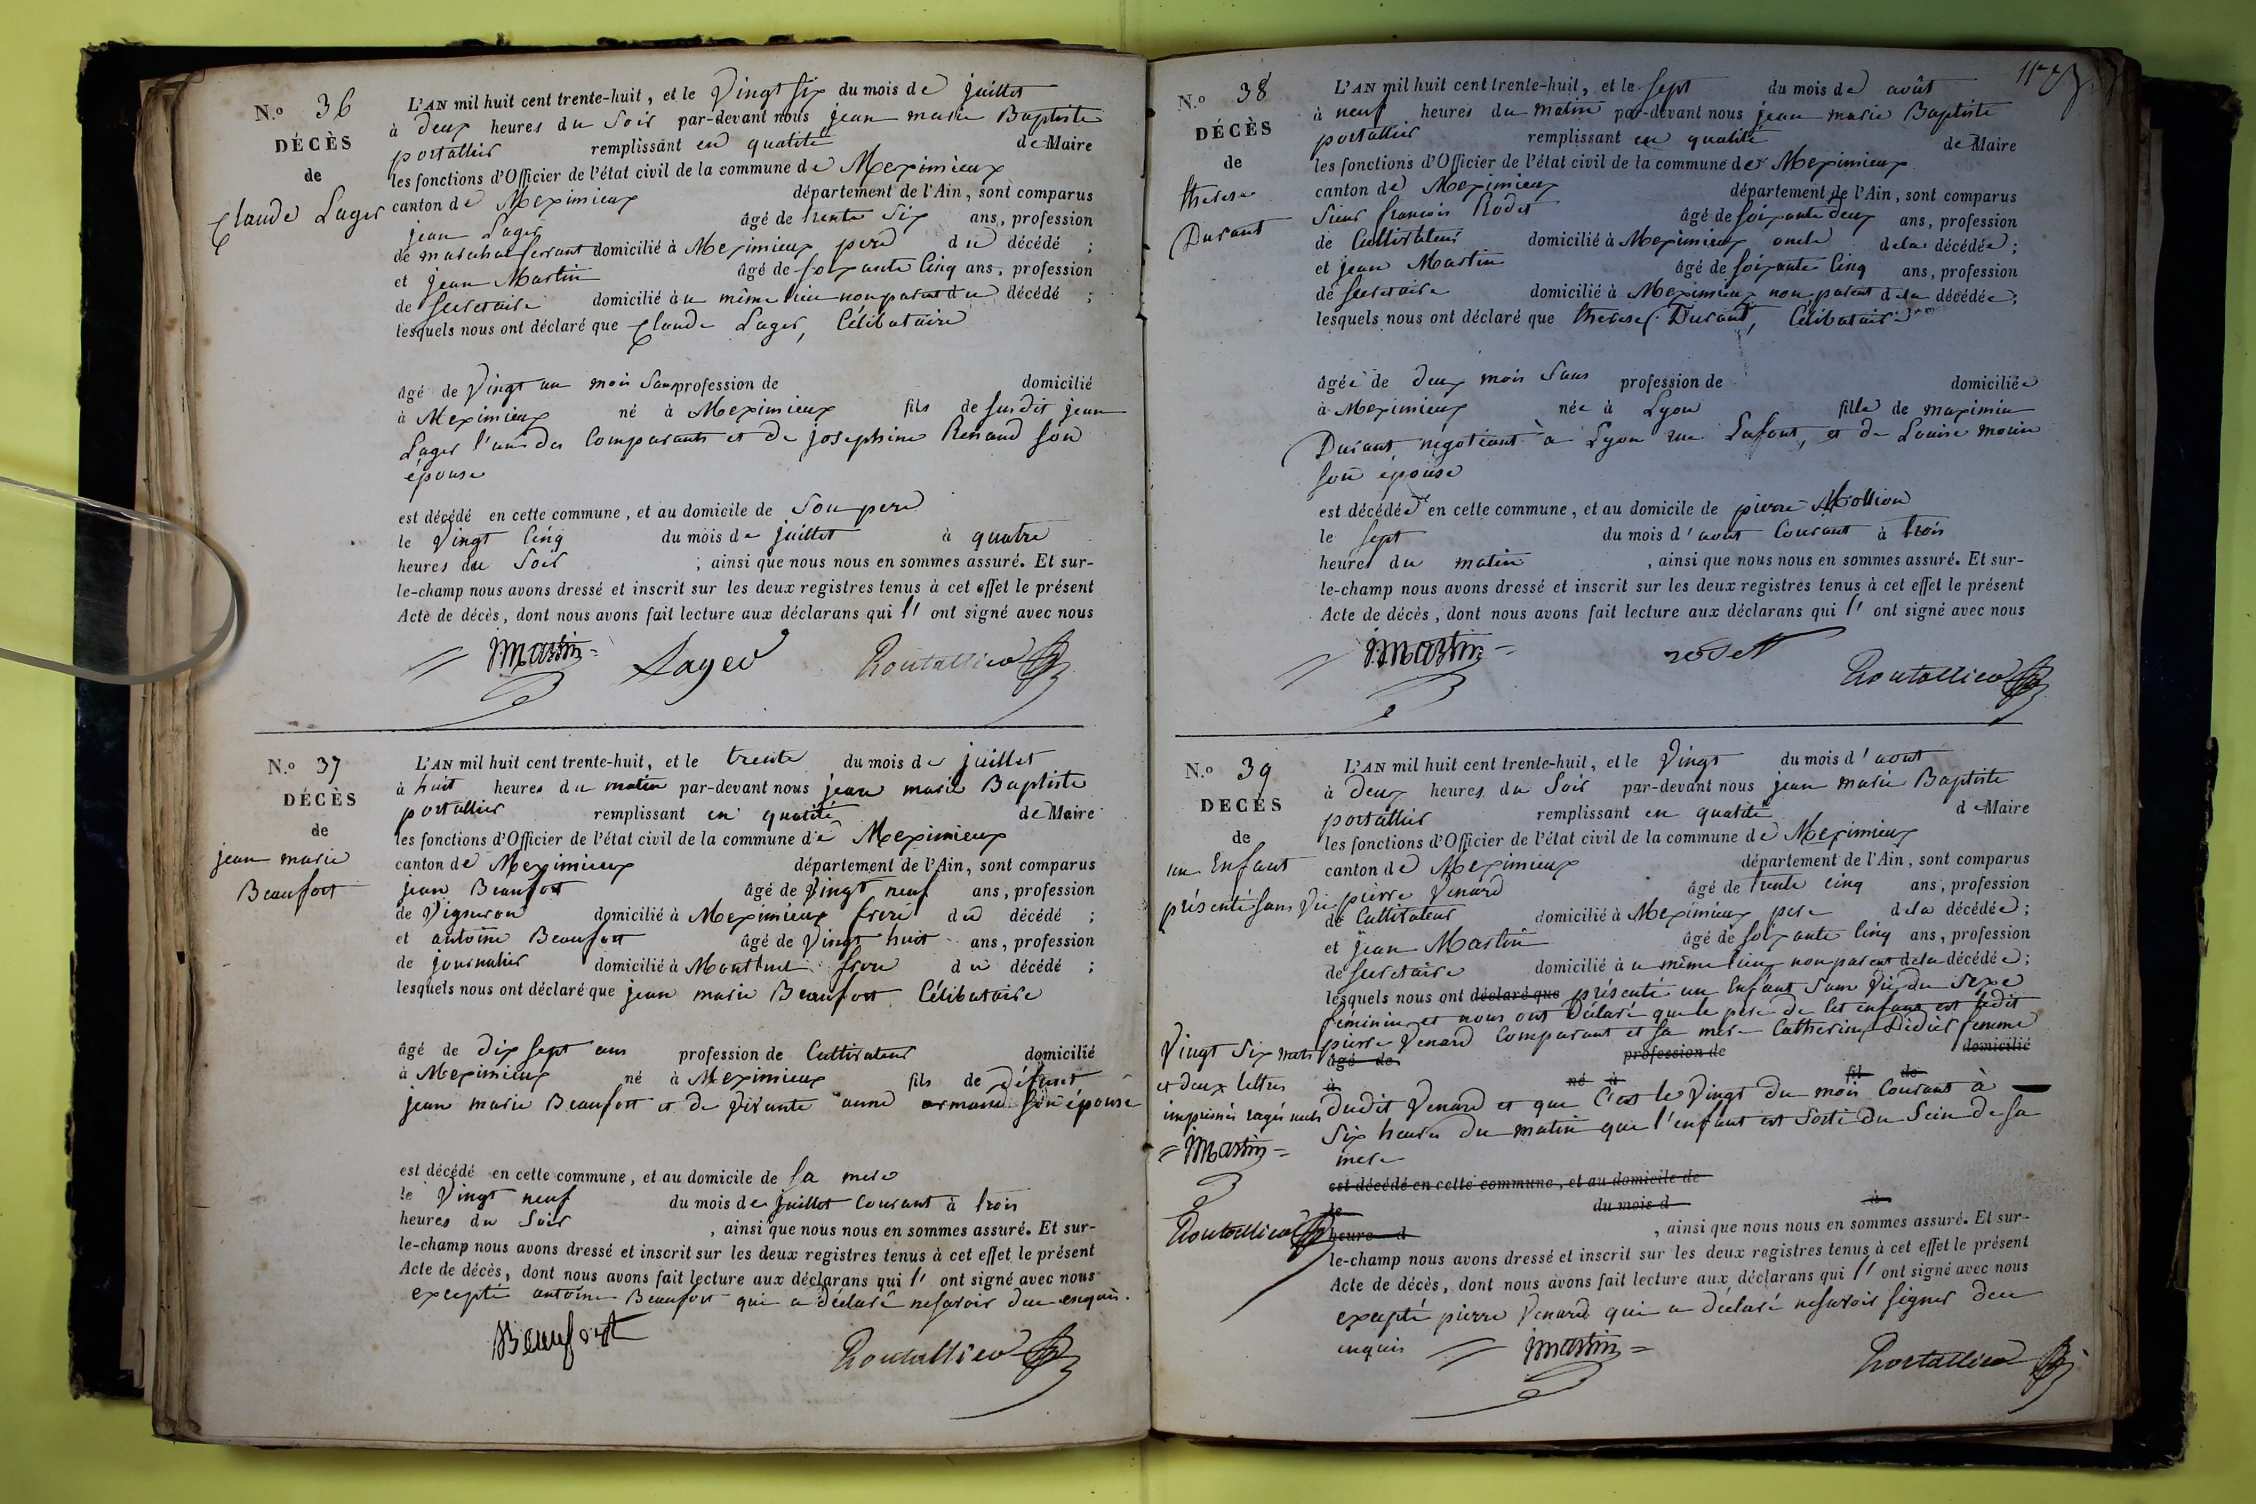 N.o 36
DÉCÈS
de
Claude Lager
L'AN mil huit cent trente-huit, et le Vingt six du mois de juillet
à deux heures du Soir par-devant nous jean marie Baptiste
portallier remplissant en qualité de Maire
les fonctions d'Officier de l'état civil de la commune de Meximieux
canton de Meximieux département de l'Ain, sont comparus
jean Lager âgé de trente Six ans, profession
de marechal ferrant domicilié à Meximieux pere du décédé ;
et jean Martin âgé de soixante Cinq ans, profession
de Secretaire domicilié au même lieu non parent du décédé ;
lesquels nous ont déclaré que Claude Lager, Célibataire
âgé de Vingt un mois Sans profession de domicilié
à Meximieux né à Meximieux fils de susdit jean
Lager l'un des Comparants et de josephine Renaud son
épouse
est décédé en cette commune, et au domicile de Son pere
le Vingt Cinq du mois de juillet à quatre
heures du Soir ; ainsi que nous nous en sommes assuré. Et sur-
le-champ nous avons dressé et inscrit sur les deux registres tenus à cet effet le présent
Acte de décès, dont nous avons fait lecture aux déclarans qui l' ont signé avec nous
jmartin Lager Portallier
N.o 37
DÉCÈS
de
jean marie
Beaufort
L'AN mil huit cent trente-huit, et le trente du mois de juillet
à huit heures du matin par-devant nous jean marie Baptiste
portallier remplissant en qualité de Maire
les fonctions d'Officier de l'état civil de la commune de Meximieux
canton de Meximieux département de l'Ain, sont comparus
jean Beaufort âgé de Vingt neuf ans, profession
de Vigneron domicilié à Meximieux frere du décédé ;
et antoine Beaufort âgé de Vingt huit ans, profession
de journalier domicilié à Montluel frere du décédé ;
lesquels nous ont déclaré que jean marie Beaufort Célibataire
âgé de dix Sept ans profession de Cultivateur domicilié
à Meximieux né à Meximieux fils de défunt
jean marie Beaufort et de Vivante anne armand son épouse
est décédé en cette commune, et au domicile de Sa mere
le Vingt neuf du mois de juillet Courant à trois
heures du Soir , ainsi que nous nous en sommes assuré. Et sur-
le-champ nous avons dressé et inscrit sur les deux registres tenus à cet effet le présent
Acte de décès, dont nous avons fait lecture aux déclarans qui l' ont signé avec nous
excepté antoine Beaufort qui a déclaré ne savoir due enquis.
Beaufort Portallier
N.o 38
DÉCÈS
de
therese
Durant
L'AN mil huit cent trente-huit, et le sept du mois de août
à neuf heures du matin par-devant nous jean marie Baptiste
portallier remplissant en qualité de Maire
les fonctions d'Officier de l'état civil de la commune de Meximieux
canton de Meximieux département de l'Ain, sont comparus
Sieur françois Rodet âgé de soixante deux ans, profession
de Cultivateur domicilié à Meximieux oncle de la décédée ;
et jean Martin âgé de soixante Cinq ans, profession
de Secretaire domicilié à Meximieux non parent de la décédée ;
lesquels nous ont déclaré que therese Durant, Célibataire
âgée de deux mois Sans profession de domiciliée
à Meximieux née à Lyon fille de maximin
Durant negotiant à Lyon rue Lafont, et de Louise morin
son épouse
est décédée en cette commune, et au domicile de pierre Mollion
le sept du mois d'aout Courant à trois
heures du matin , ainsi que nous nous en sommes assuré. Et sur-
le-champ nous avons dressé et inscrit sur les deux registres tenus à cet effet le présent
Acte de décès, dont nous avons fait lecture aux déclarans qui l' ont signé avec nous
jmartin rodet Portallier
N.o 39
DECÈS
de
un Enfant
présenté sans Vie
L'AN mil huit cent trente-huit, et le Vingt du mois d'aout
à deux heures du Soir par-devant nous jean marie Baptiste
portallier remplissant en qualité de Maire
les fonctions d'Officier de l'état civil de la commune de Meximieux
canton de Meximieux département de l'Ain, sont comparus
pierre Venard âgé de trente cinq ans, profession
de Cultivateur domicilié à Meximieux pere de la décédée ;
et jean Martin âgé de soixante Cinq ans, profession
de Secretaire domicilié au même lieu non parent de la décédée ;
lesquels nous ont déclaré que présenté un Enfant Sans Vie du Sexe
féminin et nous ont déclaré que le pere de Cet enfant est ledit
pierre Venard Comparant et sa mere Catherine Didier femme
âgé de profession de domicilié
à né à fil de
dudit Venard et que C'est le Vingt du mois Courant à
Six heures du matin que l'enfant est Sorti du Sein de sa
mere
est décédé en cette commune, et au domicile de
le du mois d à
heure d , ainsi que nous nous en sommes assuré. Et sur-
le-champ nous avons dressé et inscrit sur les deux registres tenus à cet effet le présent
Acte de décès, dont nous avons fait lecture aux déclarans qui l' ont signé avec nous
excepté pierre Venard qui a déclaré ne savoir signer deu
enquis jmartin Portallier
Vingt Six mots
et deux lettres
imprimés rayés nuls
jmartin
Portallier